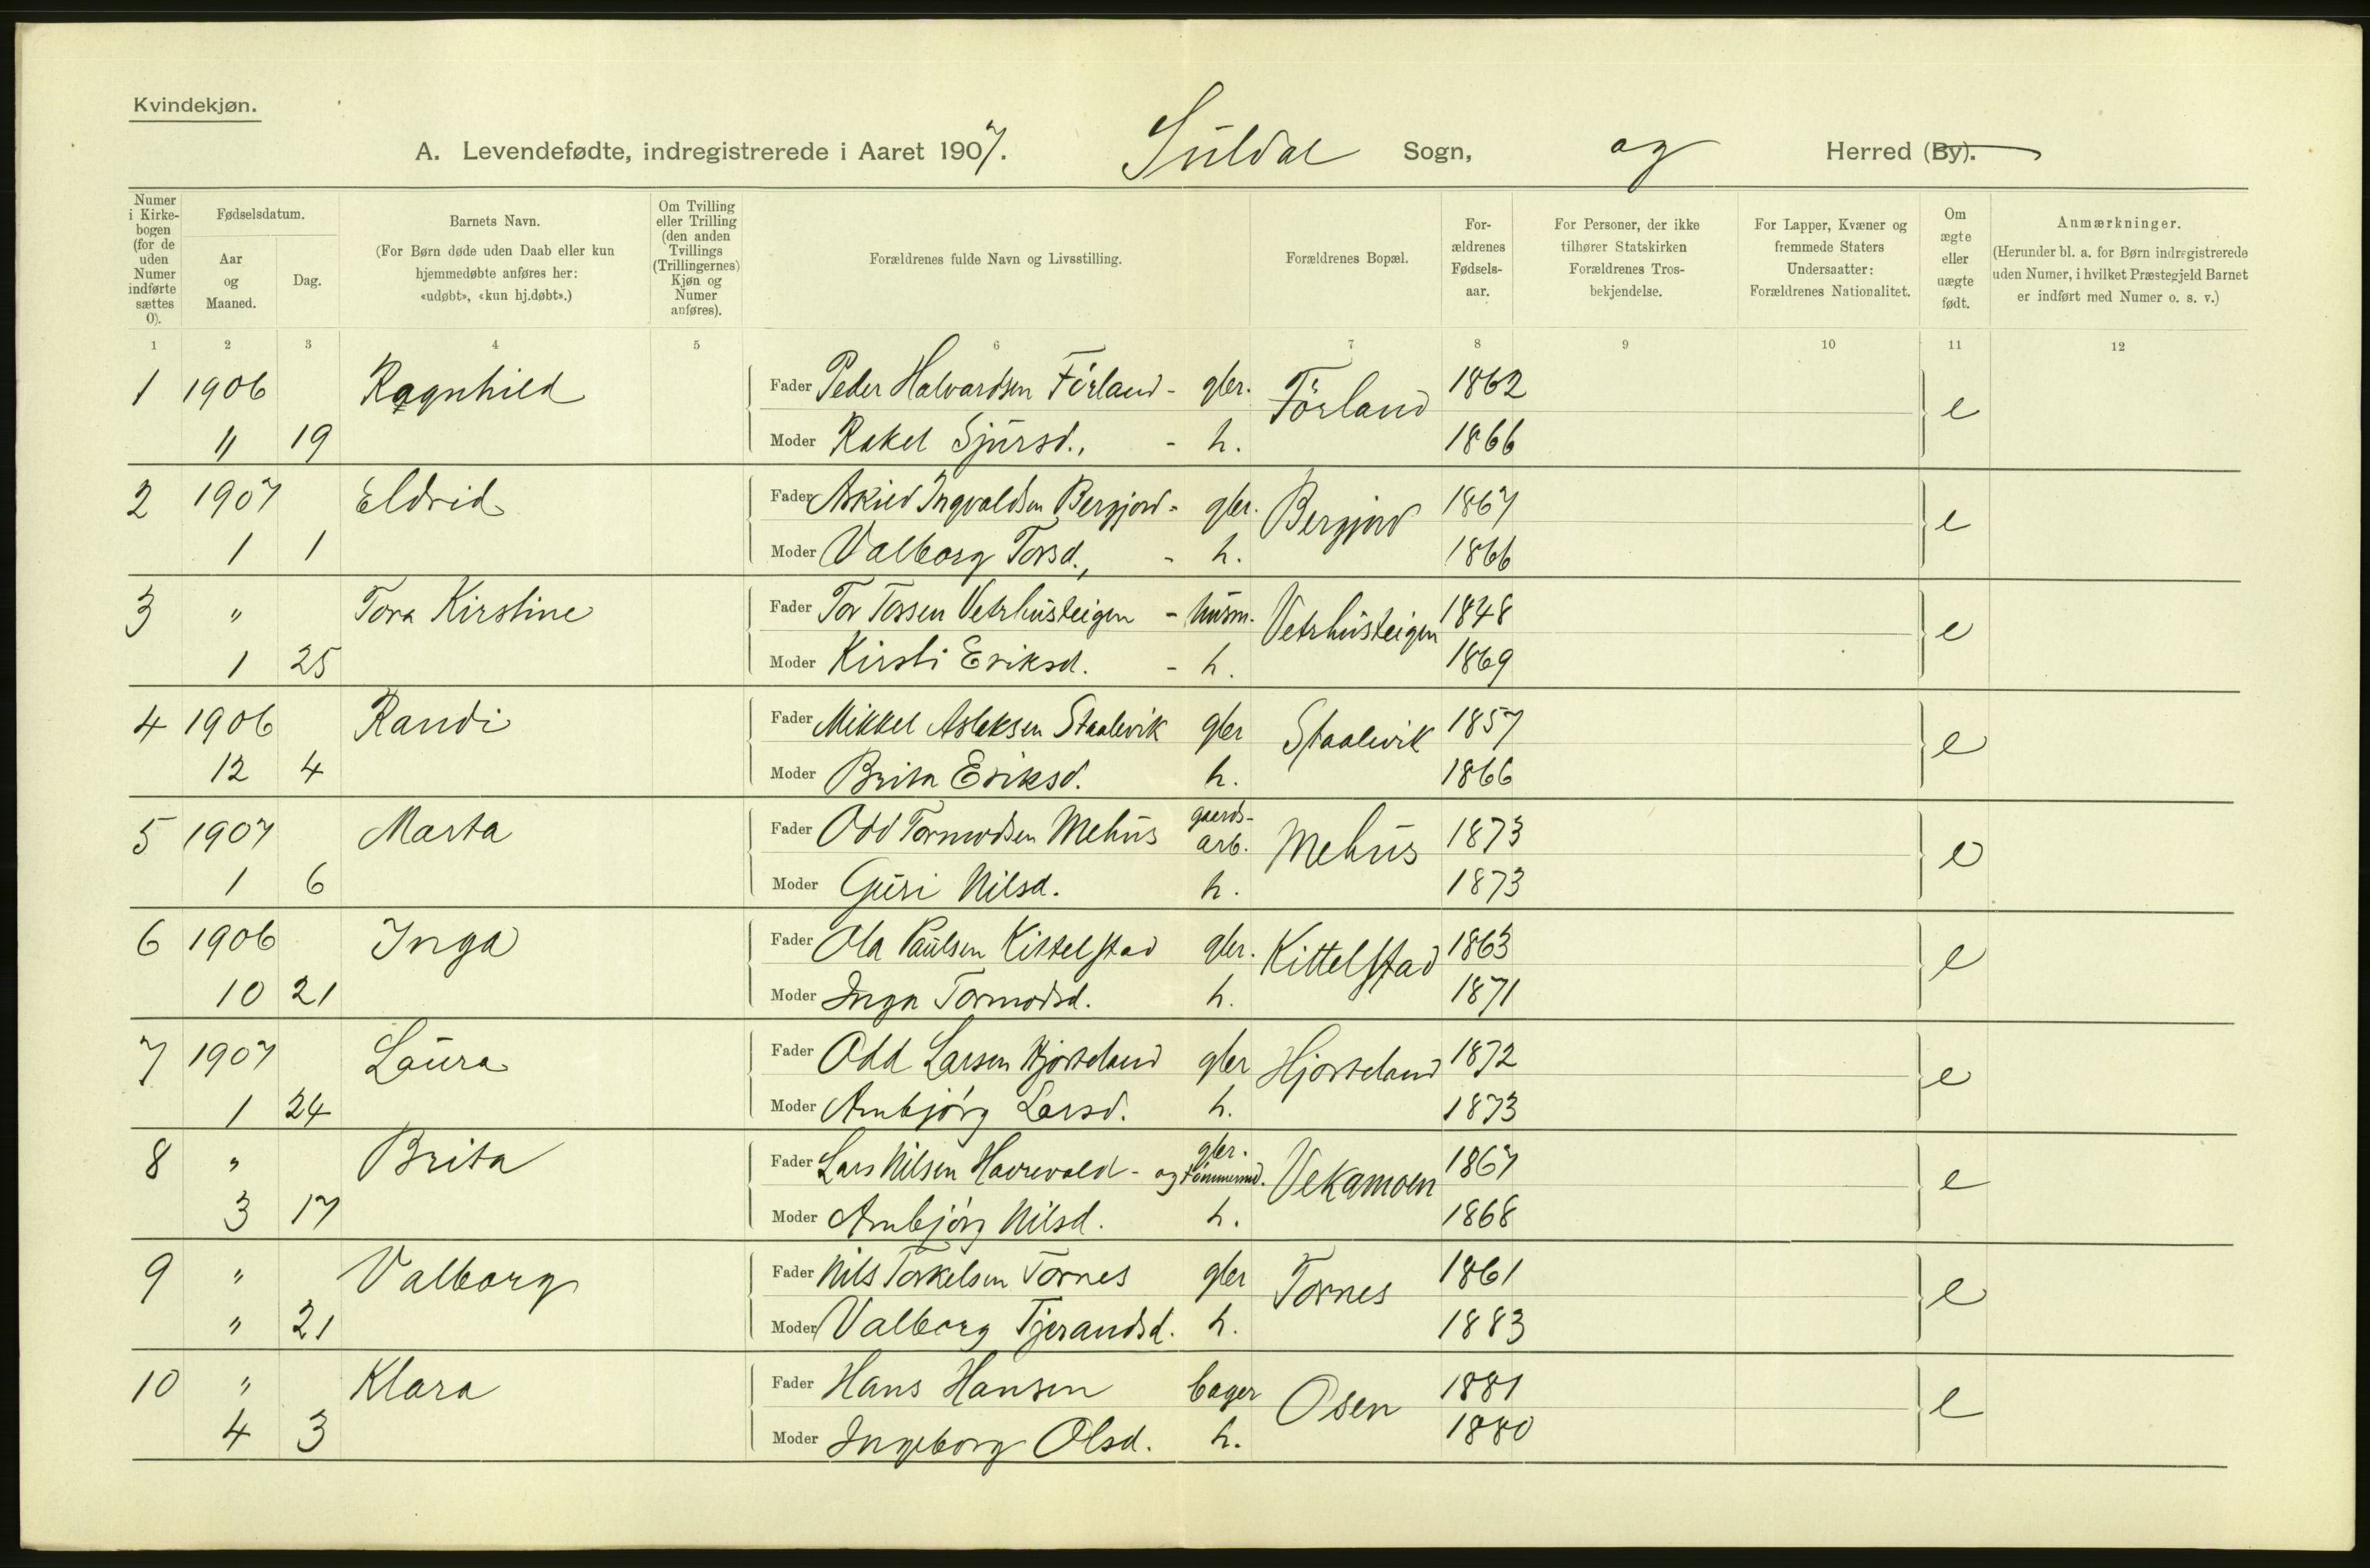 Kvindekjøn.
A. Levendefødte, indregistrerede i Aaret 1907. Suldal Sogn, og Herred (By).
Numer i Kirke-bogen (for de uden Numer indførte sættes 0).
Fødselsdatum.
Aar og Maaned.
Dag.
Barnets Navn.
(For Børn døde uden Daab eller kun hjemmedøbte anføres her: «udøbt», «kun hj.døbt».)
Om Tvilling eller Trilling (den anden Tvillings (Trillingernes) Kjøn og Numer anføres).
Forældrenes fulde Navn og Livsstilling.
Forældrenes Bopæl.
For-ældrenes Fødsels-aar.
For Personer, der ikke tilhører Statskirken Forældrenes Tros-bekjendelse.
For Lapper, Kvæner og fremmede Staters Undersaatter: Forældrenes Nationalitet.
Om ægte eller uægte født.
Anmærkninger.
(Herunder bl. a. for Børn indregistrerede uden Numer, i hvilket Præstegjeld Barnet er indført med Numer o. s. v.)
1 2 3 4 5 6 7 8 9 10 11 12
1 1906 Ragnhild Fader Peder Halvardsen Förland - gbr. Förland 1862 e
11 19 Moder Rakel Sjursd., - h. 1866
2 1907 Eldrid Fader Askild Ingvaldsen Bergjord - gbr. Bergjord 1867 e
1 1 Moder Valborg Torsd., - h. 1866
3 " Tora Kirstine Fader Tor Torsen Vetrhusteigen - husm. Vetrhusteigen 1848 e
1 25 Moder Kirsti Eriksd. - h. 1869
4 1906 Randi Fader Mikkel Aslaksen Staalevik gbr Staalevik 1857 e
12 4 Moder Brita Eriksd. h. 1866
5 1907 Marta Fader Odd Tormodsen Mehus gaards-arb. Mehus 1873 e
1 6 Moder Guri Nilsd. h. 1873
6 1906 Inga Fader Ola Paulsen Kittelstad gbr. Kittelstad 1863 e
10 21 Moder Inga Tormodsd. h. 1871
7 1907 Laura Fader Odd Larsen Hjorteland gbr Hjorteland 1872 e
1 24 Moder Ambjörg Larsd. h. 1873
8 " Brita Fader Lars Nilsen Havrevold - gbr. og tömmermd. Vekamoen 1867 e
3 17 Moder Ambjörg Nilsd. h. 1868
9 " Valborg Fader Nils Torkelsen Tornes gbr Tornes 1861 e
" 21 Moder Valborg Tjerandsd. h. 1883
10 " Klara Fader Hans Hansen bager Osen 1881 e
4 3 Moder Ingeborg Olsd. h. 1880